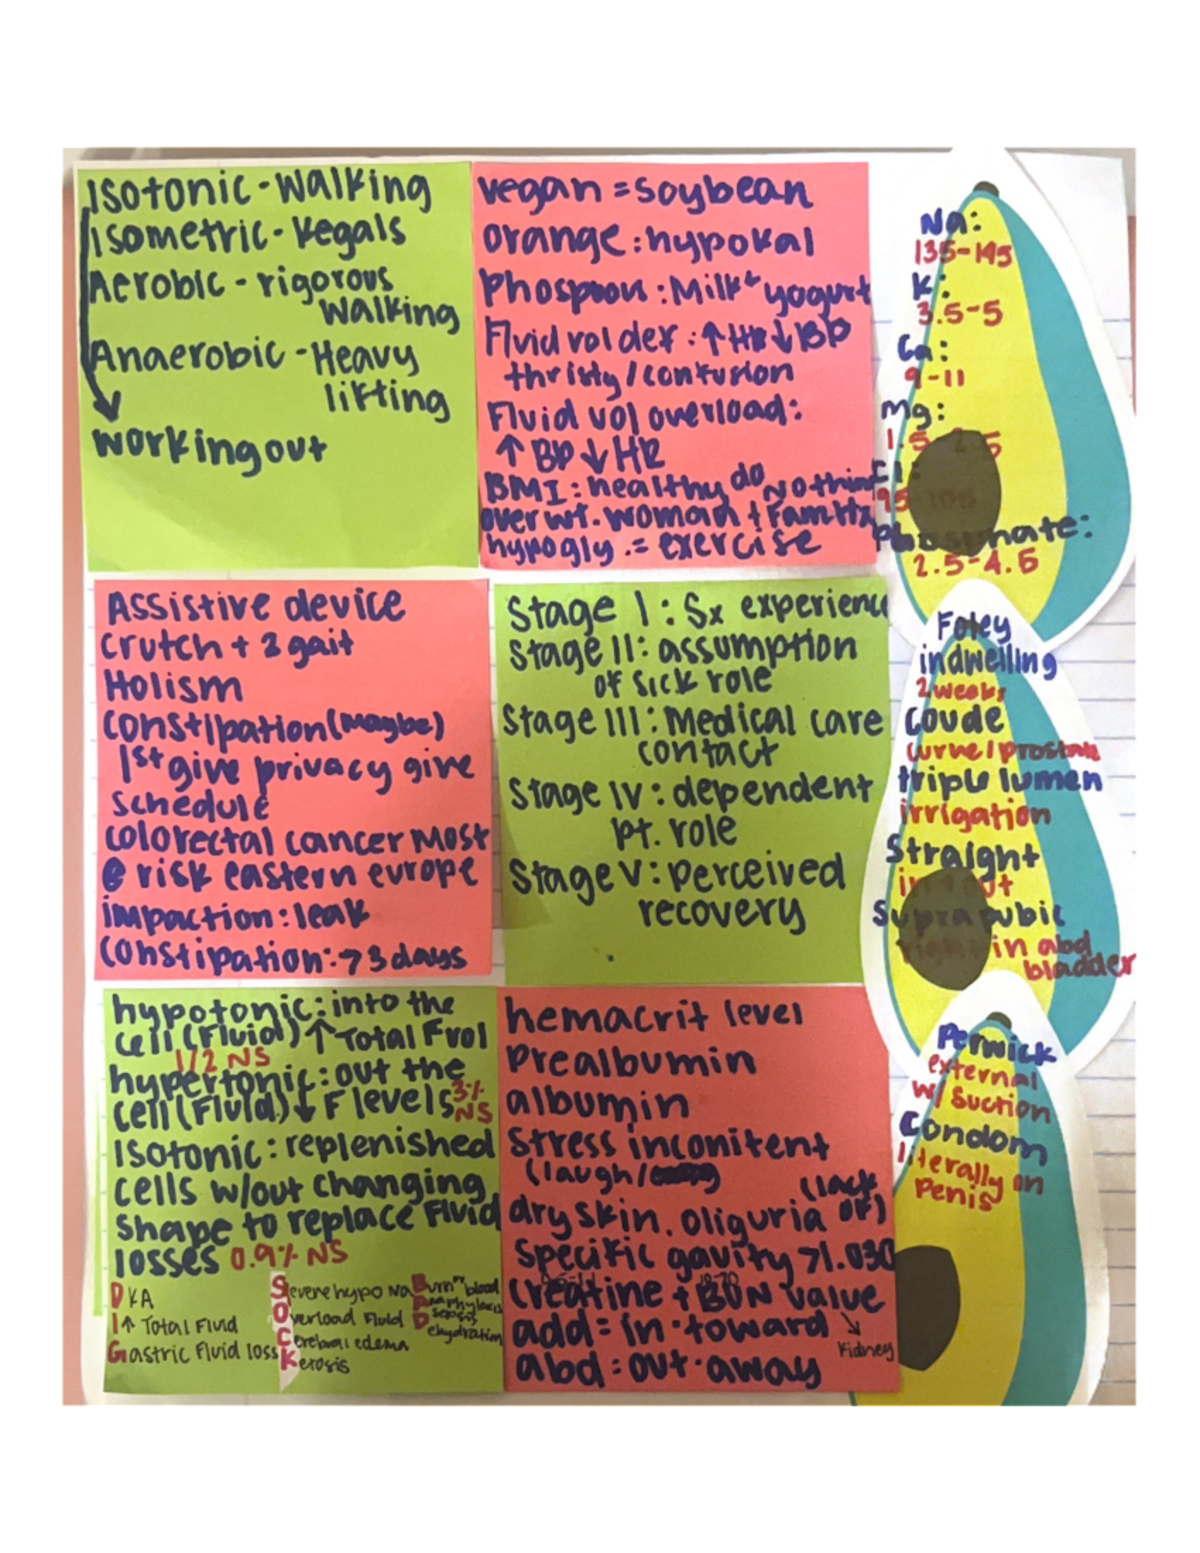 Isotonic - Walking
Isometric - Kegals
Aerobic - rigorous
walking
Anaerobic - Heavy
lifting
working out
vegan = soybean
orange : hypokal
Milk + yogurt
Fluid vol def : ↑ HR ↓ BP
thristy / confusion
Fluid vol overload:
↑ BP ↓ HR
BMI : healthy do nothing
over wt. woman + Fam Hx
hypogly. = exercise
Na:
135-145
K:
3.5-5
Ca:
9-11
Mg:
1.5-2.5
Cl:
95-105
Phosphate:
2.5-4.5
Assistive device
Crutch + 2 gait
Holism
constipation (maybe)
1st give privacy give
schedule
colorectal cancer most
@ risk eastern europe
impaction : leak
Constipation: > 3 days
Stage I : Sx experience
Stage II : assumption
of sick role
Stage III : Medical care
contact
Stage IV : dependent
pt. role
Stage V : perceived
recovery
Foley
indwelling
2 weeks
Coude
curve / prostate
triple lumen
irrigation
Straight
in + out
Suprapubic
right in abd
bladder
hypotonic : into the
cell (Fluid) ↑ Total Fvol
1/2 NS
hypertonic : out the
cell (Fluid) ↓ F levels 3% NS
Isotonic : replenished
cells w/out changing
shape to replace Fluid
losses 0.9% NS
DKA
I↑ Total Fluid
Gastric Fluid loss
Severe hypo Na
Overload Fluid
Cerebral edema
Ketosis
Burn blood
Anaphylaxis
sepsis
Dehydration
hemacrit level
Prealbumin
albumin
stress inconitent
(laugh/
dry skin. oliguria (lack of)
Specific gavity > 1.030
Creatine + BUN value
kidney
add = in · toward
abd = out · away
Perwick
external
w/ suction
Condom
literally on
penis